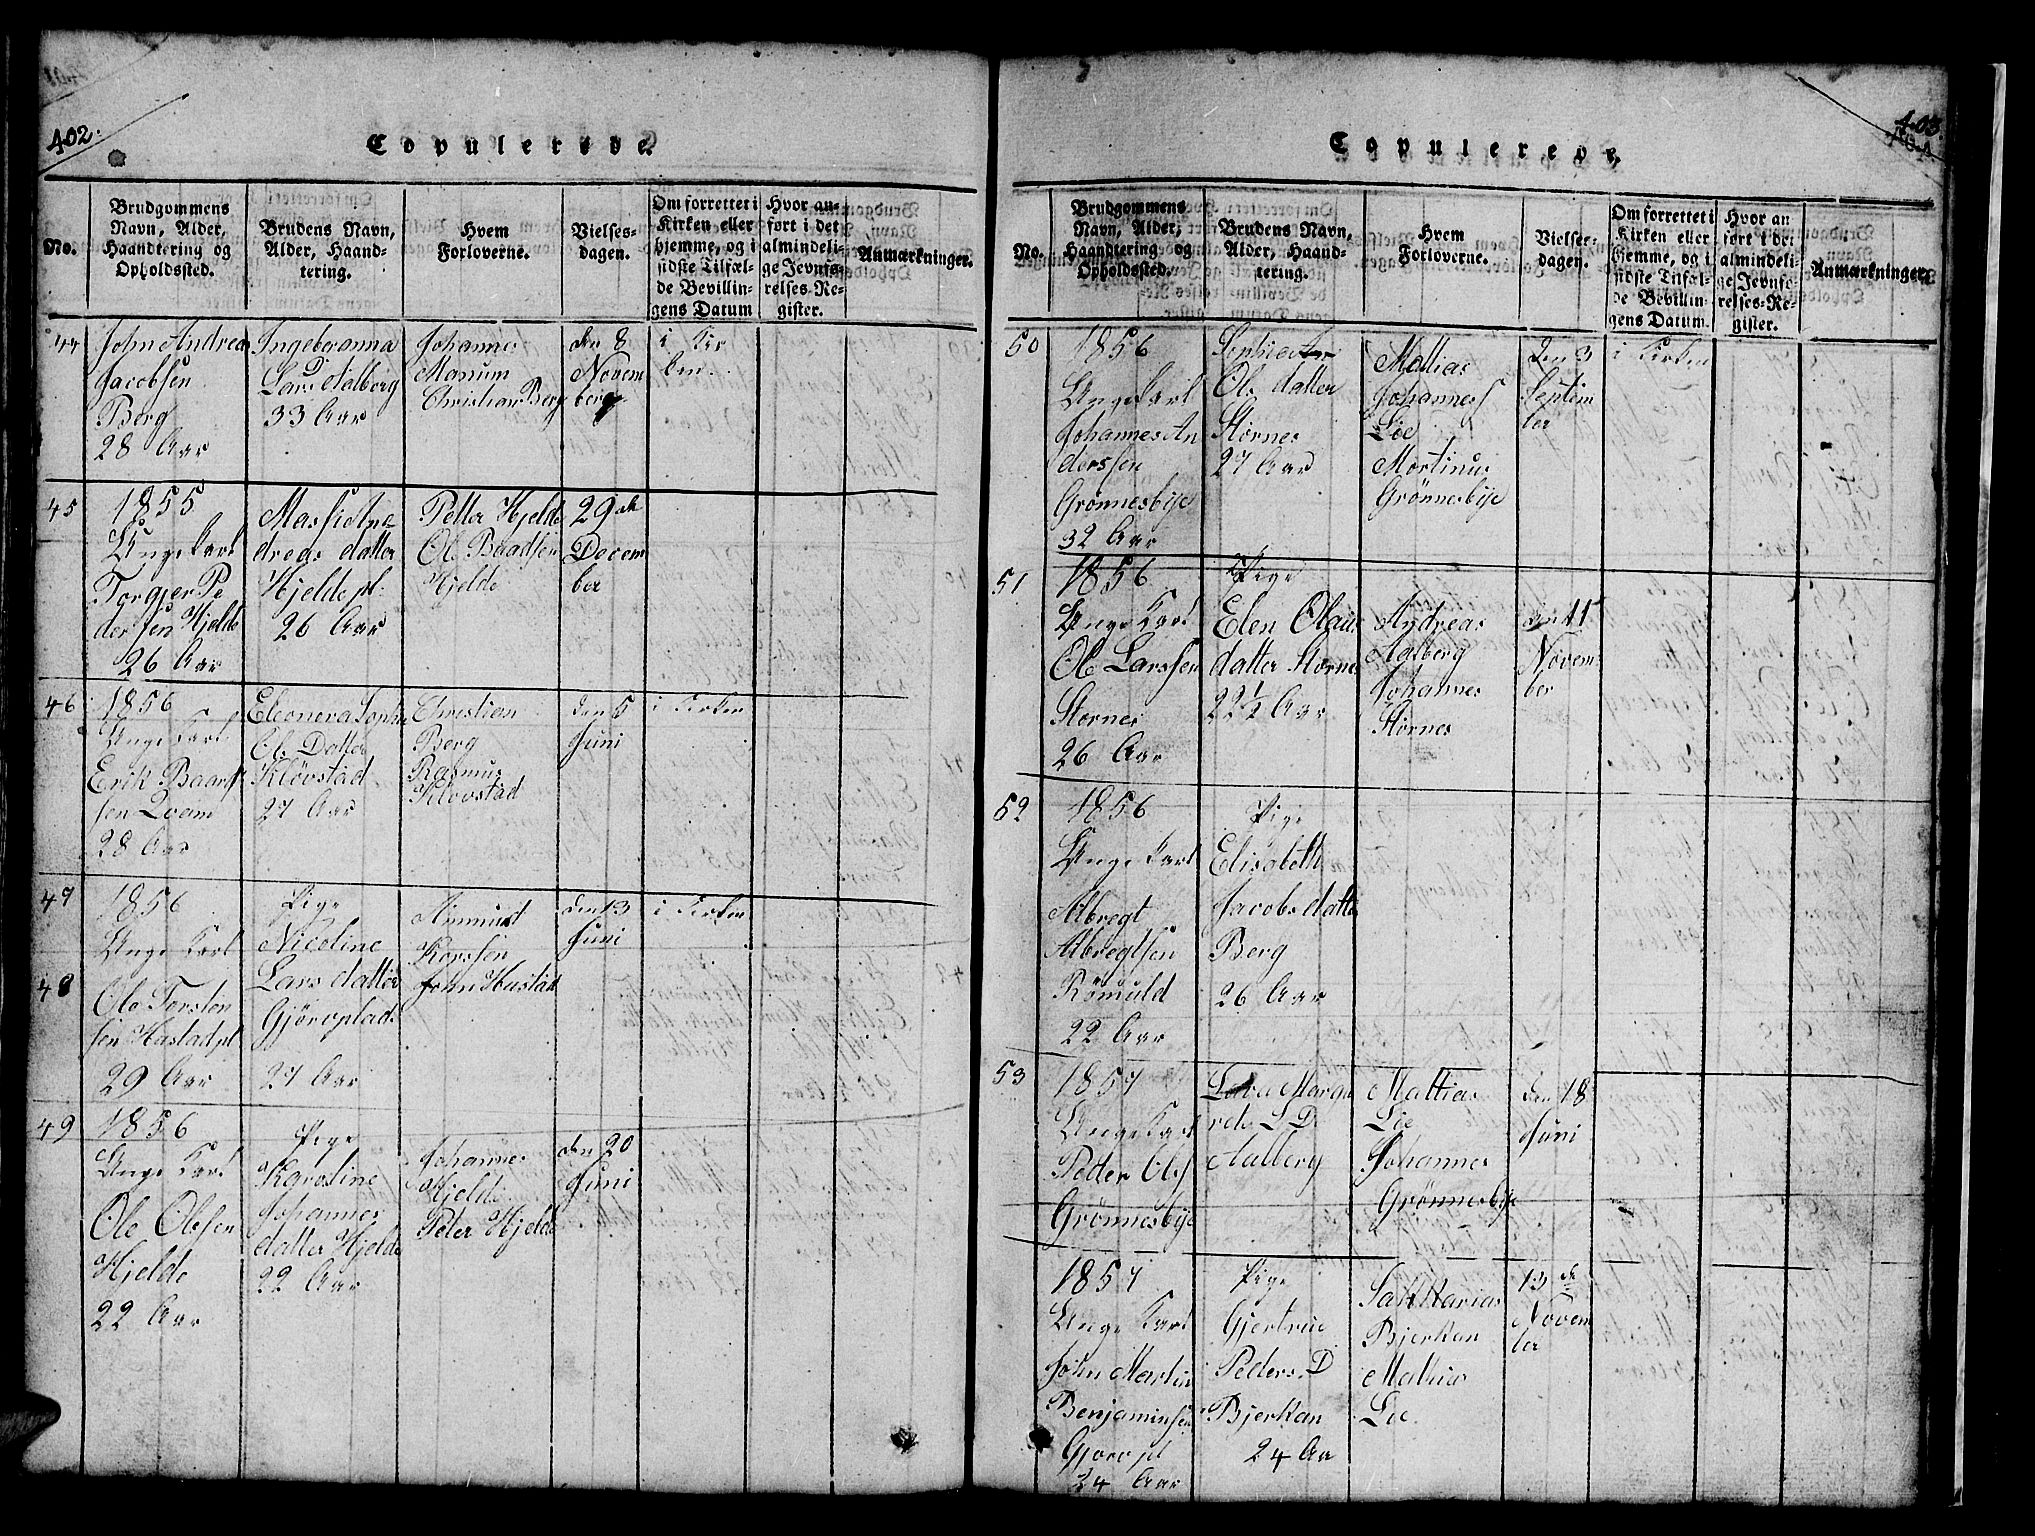 402.
Copulerede.
No.
Brudgommens
Navn, Alder,
Haandtering og
Opholdssted.
Brudens Navn,
Alder, Haand-
tering.
Hvem
Forloverne.
Vielses-
dagen.
Om forrettet i
Kirken eller
hjemme, og i
sidste Tilfæl-
de Bevillin-
gens Datum
Hvor an-
ført i det
almindeli-
ge Jevnfø-
relses-Re-
gister.
Anmærkninger.
44
John Andrea
Jacobsen
Berg
28 Aar
Ingeberanna
Lars D Aalberg
33 Aar
Johannes
Manum
Christian Berg
den 8
Novem
ber
i Kir
ken
45
1855
Unge Karl
Torgjer Pe
dersen Hjelde
26 Aar
dreas datter
Hjelde pl.
26 Aar
Petter Hjelde
Ole Baadsen
Hjelde
29 de
Decem
ber
46
1856
Unge Karl
Erik Baard
sen Qvam
28 Aar
Eleonera Sophie
Ols Datter
Kløvstad
27 Aar
Christian
Berg
Rasmus
Kløvstad
den 5
Juni
i Kirken
47
48
1856
Unge Karl
Ole Torsten
sen Hustad pl
29 Aar
Pige
Nicoline
Lars datter
Gjørvplads
27 Aar
Ammund
Korssen
John Hustad
den 13
Juni
i Kirken
49
1856
Unge Karl
Ole Olssen
Hjelde
22 Aar
Pige
Karoline
Johannes
datter Hjelde
22 Aar
Johannes
Hjelde
Peter Hjelde
den 20
Juni
403.
Copulerede.
No.
Brudgommens
Navn, Alder,
Haandtering og
Opholdssted.
Brudens Navn,
Alder, Haand-
tering.
Hvem
Forloverne.
Vielses-
dagen.
Om forrettet i
Kirken eller
hjemme, og i
sidste Tilfæl-
de Bevillin-
gens Datum.
Hvor an
ført i det
almindeli-
ge Jevnfø-
relses-Re-
gister.
Anmærkninger.
50
1856
Unge Karl
Johannes An
derssen
Grønnesbye
32 Aar
Ols datter
Stornes
27 Aar
Mattias
Johanness
Løe
Mortinus
Grønnesbye
den 3
Septem
ber
i Kirken
51
1856
Unge Karl
Ole Larssen
Stornes
26 Aar
Pige
Elen Olaus
datter Stornes
22 1/2 Aar
Andreas
Aalberg
Johannes
Stornes
den 11
Novem
ber
52
1856
Unge Karl
Albregt
Albregtsen
Römuld
22 Aar
Pige
Elisabeth
Jacobs datter
Berg
26 Aar
53
1857
Unge Karl
Peder Ols
Grønnesbye
Aalberg
Mattias
Løe
Johannes
Grønnesbye
den 18
Juni
1857
Unge Karl
John Martin
Benjaminsen
Gjørv pl
24 Aar
Pige
Gjertrue
Peders. D
Bjerkan
24 Aar
Sakkarias
Bjerkan
Mattias
Løe
13 de
Novem
ber